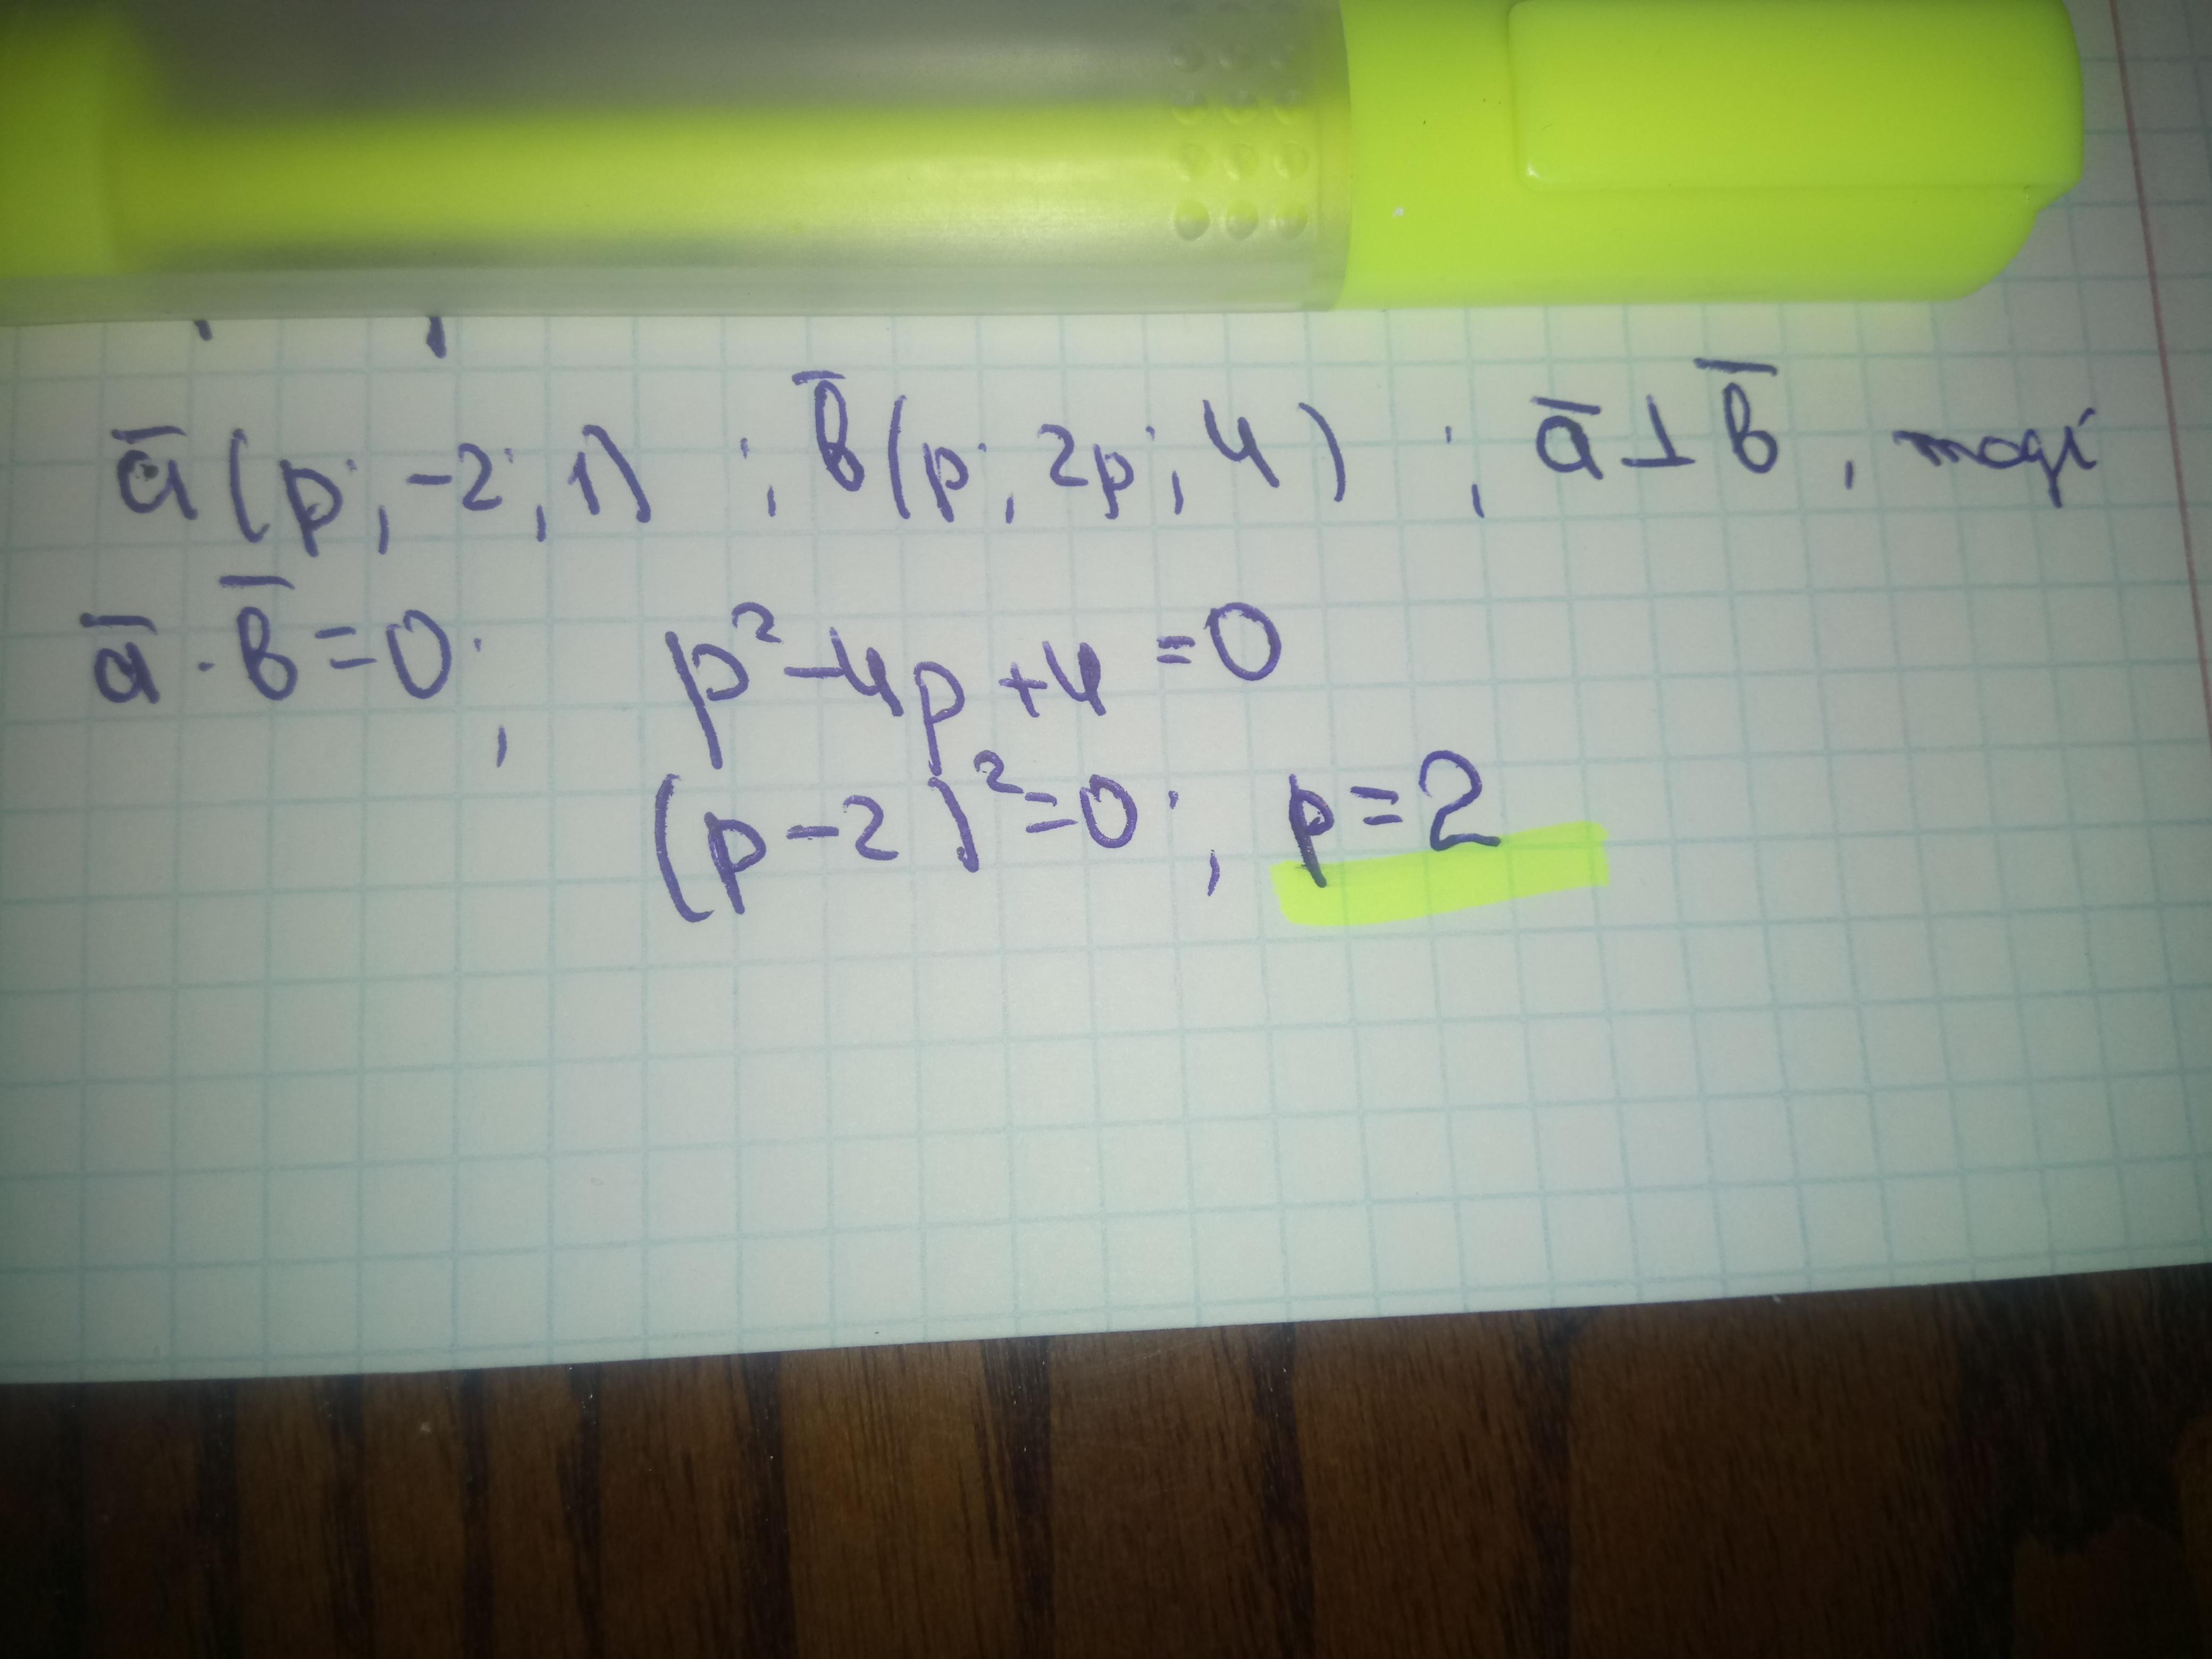 a̅(p; -2; 1) ; b̅(p; 2p; 4) ; a̅⊥b̅, тоді
a̅·b̅=0; p²-4p+4=0
(p-2)²=0; p=2